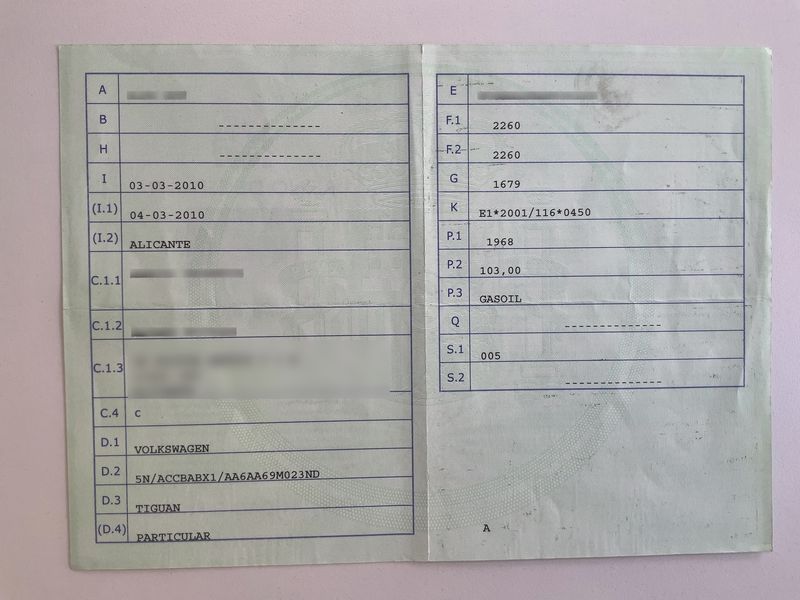 A
B --------------
H --------------
I 03-03-2010
(I.1) 04-03-2010
(I.2) ALICANTE
C.1.1
C.1.2
C.1.3
C.4 c
D.1 VOLKSWAGEN
D.2 5N/ACCBABX1/AA6AA69M023ND
D.3 TIGUAN
(D.4) PARTICULAR
E
F.1 2260
F.2 2260
G 1679
K E1*2001/116*0450
P.1 1968
P.2 103,00
P.3 GASOIL
Q --------------
S.1 005
S.2 --------------
A